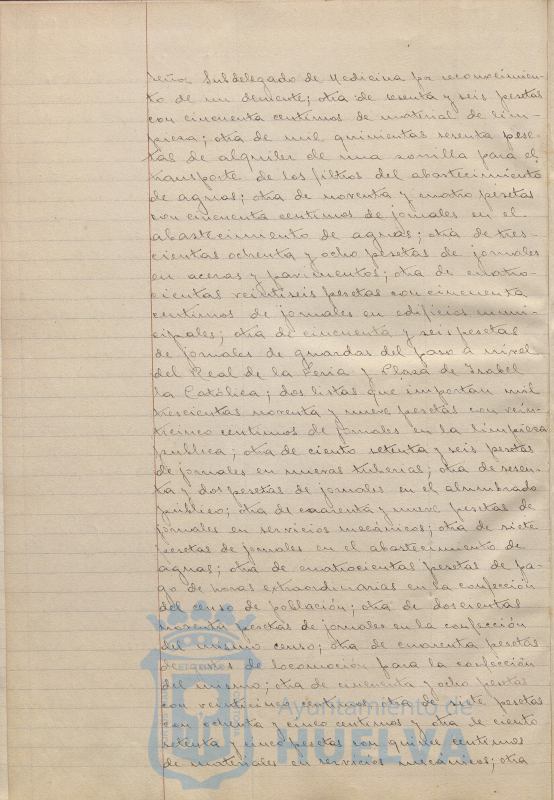 señor Subdelegado de Medicina pr reconocimien-
to de un demente; otra de sesenta y seis pesetas
con cincuenta centimos de material de lim-
pieza; otra de mil quinientas sesenta pese-
tas de alquiler de una zorrilla para el
transporte de los filtros del abastecimiento
de aguas; otra de noventa y cuatro pesetas
con cincuenta centimos de jornales en el
abastecimiento de aguas; otra de tres-
cientas ochenta y ocho pesetas de jornales
en aceras y pavimentos; otra de cuatro-
cientas veintiseis pesetas con cincuenta
centimos de jornales en edificios muni-
cipales; otra de cincuenta y seis pesetas
de jornales de guardas del paso a nivel
del Real de la Feria y Plaza de Isabel
la Católica; dos listas que importan mil
trescientas noventa y nueve pesetas con vein-
ticinco centimos de jornales en la limpieza
publica; otra de ciento setenta y seis pesetas
de jornales en nuevas tuberias; otra de sesen-
ta y dos pesetas de jornales en el alumbrado
público; otra de cuarenta y nueve pesetas de
jornales en servicios mecánicos; otra de siete
pesetas de jornales en el abastecimiento de
aguas; otra de cuatrocientas pesetas de pa-
go de horas extraordinarias en la confección
del censo de población; otra de doscientas
noventa pesetas de jornales en la confección
del mismo censo; otra de cuarenta pesetas
de gastos de locomoción para la confección
del mismo; otra de cincuenta y ocho pesetas
con veinticinco centimos; otra de siete pesetas
con ochenta y cinco centimos y otra de ciento
setenta y cinco pesetas con quince centimos
de materiales en servicios mecánicos; otra
Ayuntamiento de
HUELVA